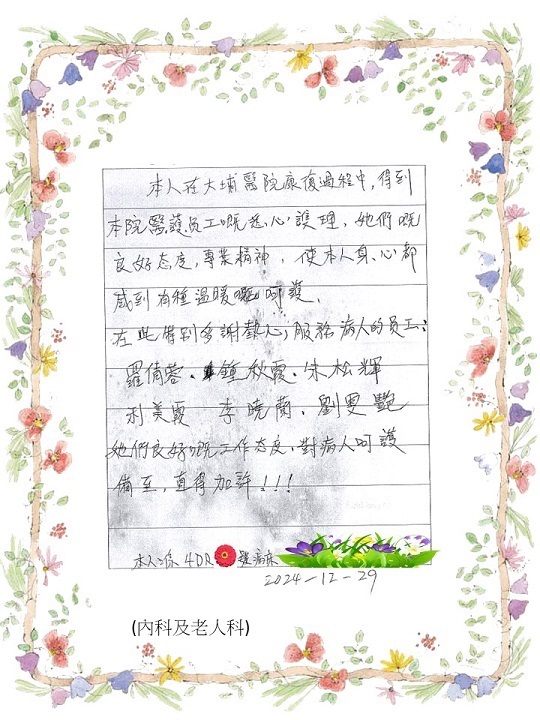 本人在大埔醫院康復過程中,得到
本院醫護员工嘅悉心護理、她們嘅
良好态度,專業精神,使本人身、心都
感到有種温暖嘅呵護.
在此得别多謝熱心服務病人的员工:
羅倩蓉、鍾秋霞、朱松輝
利美霞 李曉蘭、劉雯艷
她們良好嘅工作态度,對病人呵護
備至,直得加許!!!
本人:係 4DR 號病床
2024-12-29
(內科及老人科)